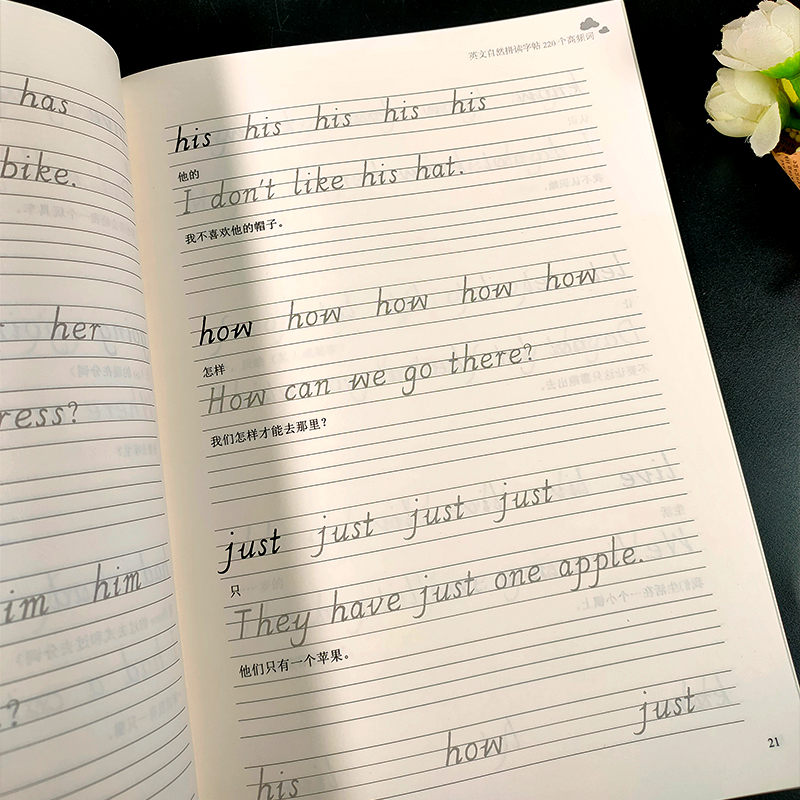 has
bike.
her
ress?
im him
?
英文自然拼读字帖 220 个高频词
his his his his his
他的
I don't like his hat.
我不喜欢他的帽子。
how how how how how
怎样
How can we go there?
我们怎样才能去那里?
just just just just
只
They have just one apple.
他们只有一个苹果。
his how just
21